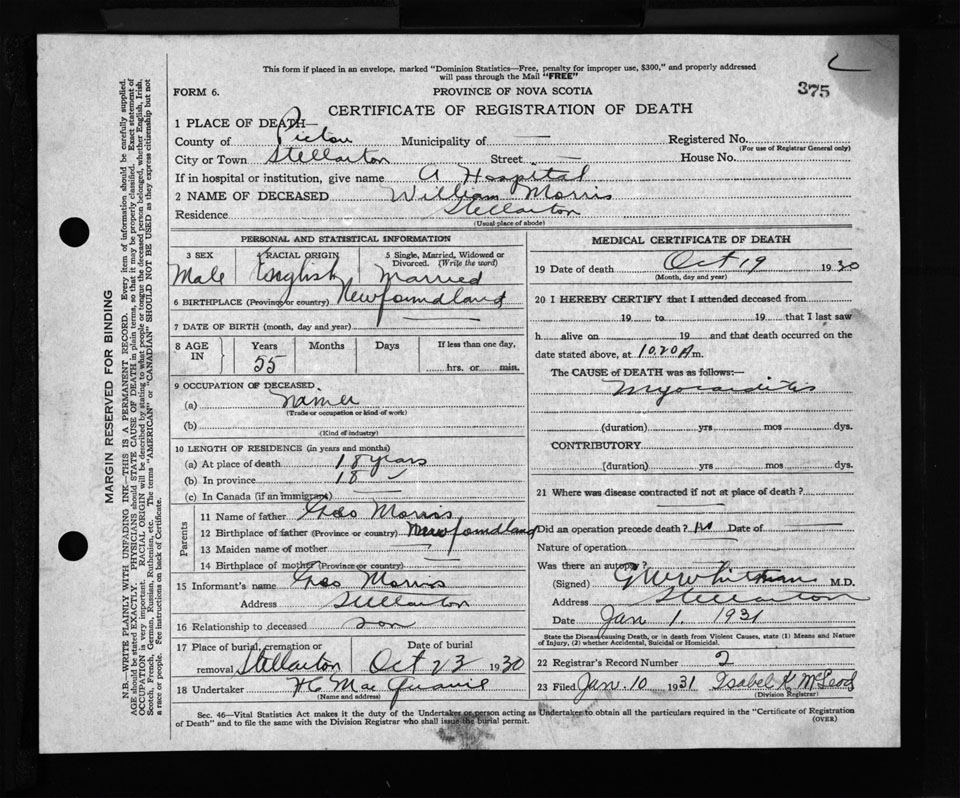 This form if placed in an envelope, marked "Dominion Statistics—Free, penalty for improper use, $300," and properly addressed
will pass through the Mail "FREE"
FORM 6.
PROVINCE OF NOVA SCOTIA
375
CERTIFICATE OF REGISTRATION OF DEATH
1 PLACE OF DEATH—
County of Pictou Municipality of — Registered No.
(For use of Registrar General only)
City or Town Stellarton Street — House No.
If in hospital or institution, give name A Hospital
2 NAME OF DECEASED William Morris
Residence Stellarton
(Usual place of abode)
PERSONAL AND STATISTICAL INFORMATION
3 SEX 4 RACIAL ORIGIN 5 Single, Married, Widowed or
Divorced. (Write the word)
Male English Married
6 BIRTHPLACE (Province or country) Newfoundland
7 DATE OF BIRTH (month, day and year)
8 AGE IN Years Months Days If less than one day,
55 hrs. or min.
9 OCCUPATION OF DECEASED.
(a)
(Trade or occupation or kind of work)
(b)
(Kind of industry)
10 LENGTH OF RESIDENCE (in years and months)
(a) At place of death 18 years
(b) In province 18 ✓
(c) In Canada (if an immigrant) —
Parents
11 Name of father Geo Morris
12 Birthplace of father (Province or country) Newfoundland
13 Maiden name of mother —
14 Birthplace of mother (Province or country) —
15 Informant's name Geo Morris
Address Stellarton
16 Relationship to deceased son
17 Place of burial, cremation or Date of burial
removal Stellarton Oct 23 1930
18 Undertaker H C Mac
(Name and address)
MEDICAL CERTIFICATE OF DEATH
19 Date of death Oct 19 1930
(Month, day and year)
20 I HEREBY CERTIFY that I attended deceased from
19 to 19 that I last saw
h alive on 19 and that death occurred on the
date stated above, at 10.20 A m.
The CAUSE of DEATH was as follows:—
Myocarditis
(duration) yrs mos dys.
CONTRIBUTORY
(duration) yrs mos dys.
21 Where was disease contracted if not at place of death?
Did an operation precede death? no Date of —
Nature of operation
Was there an autopsy? —
(Signed) G W Whitman M.D.
Address Stellarton
Date Jan 1. 1931
State the Disease causing Death, or in death from Violent Causes, state (1) Means and Nature
of Injury, (2) whether Accidental, Suicidal or Homicidal.
22 Registrar's Record Number 2
23 Filed Jan. 10 1931 Isabel K McLeod
(Division Registrar)
Sec. 46—Vital Statistics Act makes it the duty of the Undertaker or person acting as Undertaker to obtain all the particulars required in the "Certificate of Registration
of Death" and to file the same with the Division Registrar who shall issue the burial permit.
(OVER)
MARGIN RESERVED FOR BINDING
N.B.—WRITE PLAINLY WITH UNFADING INK—THIS IS A PERMANENT RECORD. Every item of information should be carefully supplied.
AGE should be stated EXACTLY. PHYSICIANS should STATE CAUSE OF DEATH in plain terms, so that it may be properly classified. Exact statement of
OCCUPATION is very important. RACIAL ORIGIN will be described by stating to what people or tongue the deceased person belonged, whether English, Irish,
Scotch, French, German, Russian, Ruthenian, etc. The terms "AMERICAN" or "CANADIAN" SHOULD NOT BE USED as they express citizenship but not
a race or people. See instructions on back of Certificate.